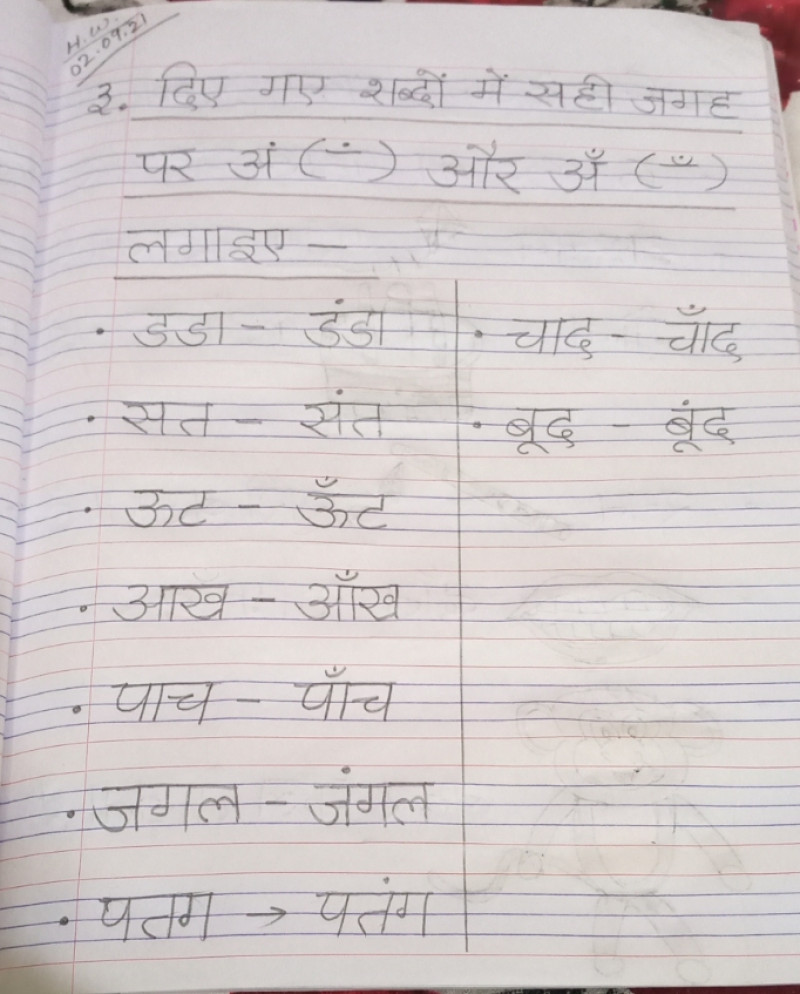 H.W.
02.09.21
३. दिए गए शब्दों में सही जगह
पर अं (-ं) और अँ (-ँ)
लगाइए –
• डडा – डंडा
• सत – संत
• ऊट – ऊँट
• आख – आँख
• पाच – पाँच
• जगल – जंगल
• पतग → पतंग
• चाद – चाँद
• बूद – बूंद